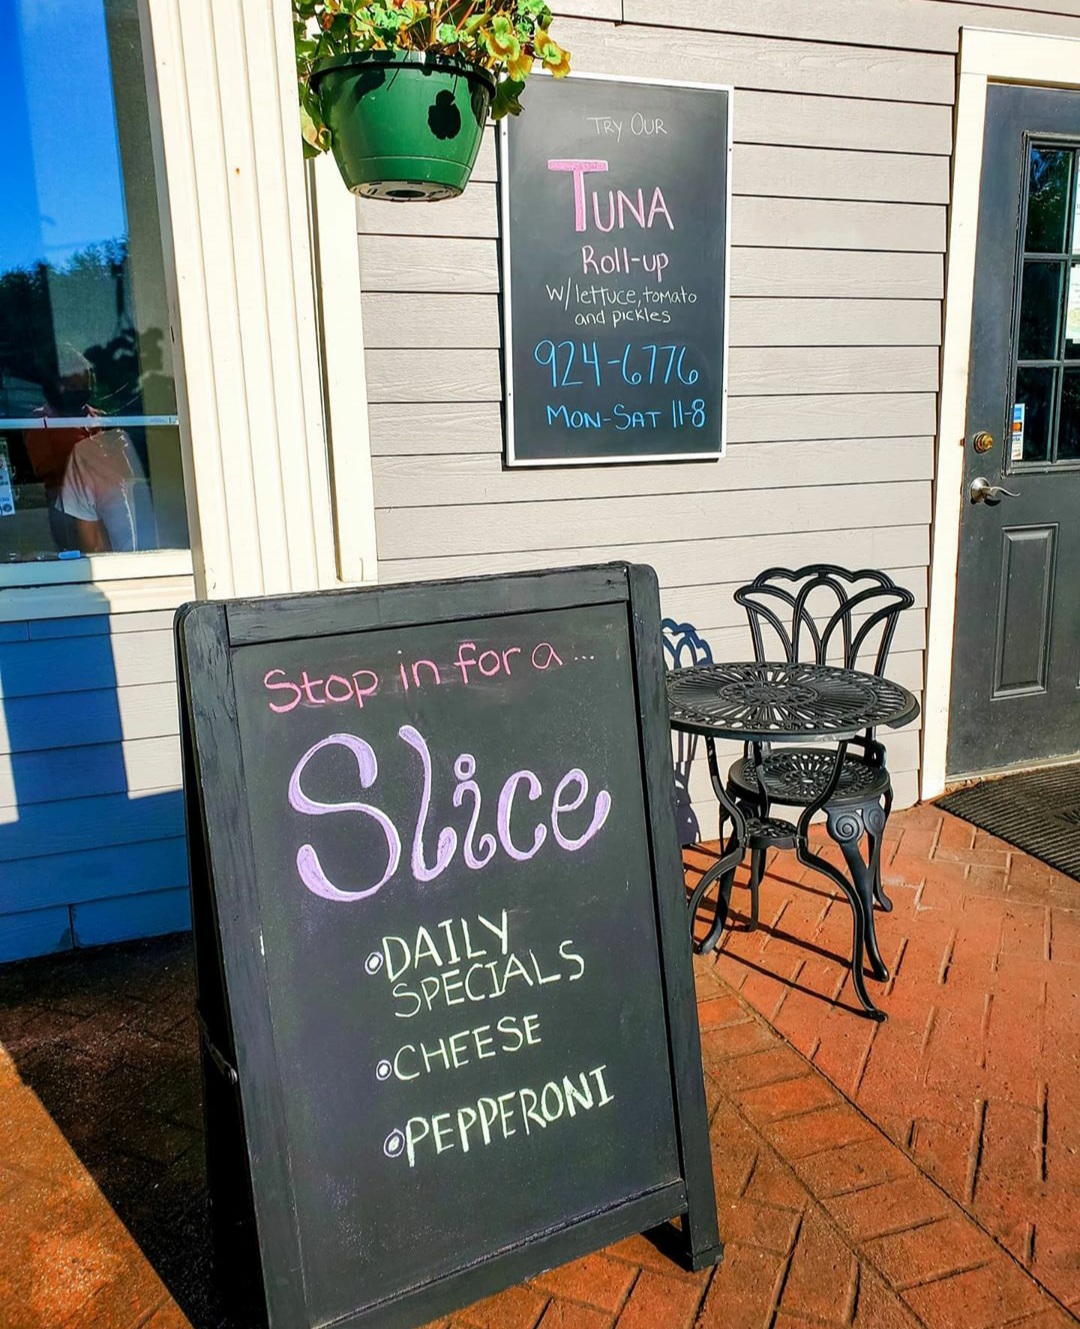 Try Our
Tuna
Roll-up
w/lettuce, tomato
and pickles
924-6776
Mon-Sat 11-8
Stop in for a...
Slice
DAILY
SPECIALS
CHEESE
PEPPERONI